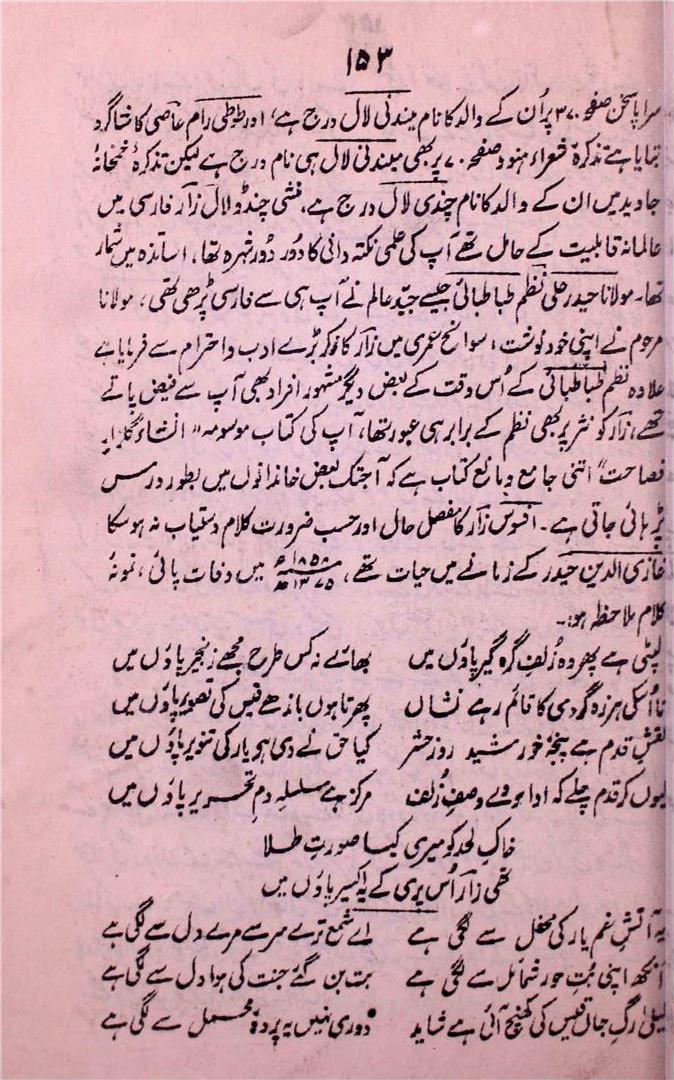 ۱۵۳
سراپا سخن صفحہ ۳۷۰ پر اُن کے والد کا نام میندنی لال درج ہے، اور طوطی رام عاصی کا شاگرد
بتایا ہے تذکرۂ شعراء ہنود صفحہ ۷۰ پر بھی میندنی لال ہی نام درج ہے لیکن تذکرۂ خمخانۂ
جاوید میں ان کے والد کا نام چندی لال درج ہے، منشی چندو لال زار فارسی میں
عالمانہ قابلیت کے حامل تھے آپ کی علمی نکتہ دانی کا دور دور شہرہ تھا، اساتذہ میں شمار
تھا۔ مولانا حیدر علی نظم طباطبائی جیسے جیّد عالم نے آپ ہی سے فارسی پڑھی تھی، مولانا
مرحوم نے اپنی خود نوشت، سوانح عمری میں زار کا ذکر بڑے ادب و احترام سے فرمایا ہے
علاوہ نظم طباطبائی کے اُس وقت کے بعض دیگر مشہور افراد بھی آپ سے فیض پاتے
تھے، زار کو نثر پر بھی نظم کے برابر ہی عبور تھا، آپ کی کتاب موسومہ "انشاء گلزار
فصاحت" اتنی جامع و مانع کتاب ہے کہ آجتک بعض خاندانوں میں بطور درس
پڑہائی جاتی ہے۔ افسوس زار کا مفصل حال اور حسب ضرورت کلام دستیاب نہ ہو سکا
غازی الدین حیدر کے زمانے میں حیات تھے، ۱۸۵۸ء ۱۲۷۵ھ میں وفات پائی، نمونۂ
کلام ملاحظہ ہو:۔
لپٹی ہے پھر وہ زُلفِ گرہ گیر پاؤں میں بھائے نہ کس طرح مجھے زنجیر پاؤں میں
تا اُسکی ہرزہ گردی کا قائم رہے نشاں پھرتا ہوں باندھے قیس کی تصویر پاؤں میں
نقشِ قدم ہے پنجۂ خورشید روزِ حشر کیا حق نے دی ہے یار کی تنویر پاؤں میں
کیوں کر قدم چلے کہ ادا ہووے وصفِ زُلف مرکز ہے سلسلہ دمِ تحریر پاؤں میں
خاکِ لحد کو میری کیا صورتِ طلا
تھی زار اُس پری کے یہ اکسیر پاؤں میں
یہ آتشِ غم یار کی محفل سے لگی ہے اے شمع ترے سر سے مرے دل سے لگی ہے
آنکھ اپنی بُتِ حور شمائل سے لگی ہے بت بن گئے جنت کی ہوا دل سے لگی ہے
لیلیٰ رگِ جاں قیس کی کھنچ آئی ہے شاید دوری نہیں یہ پردۂ محمل سے لگی ہے